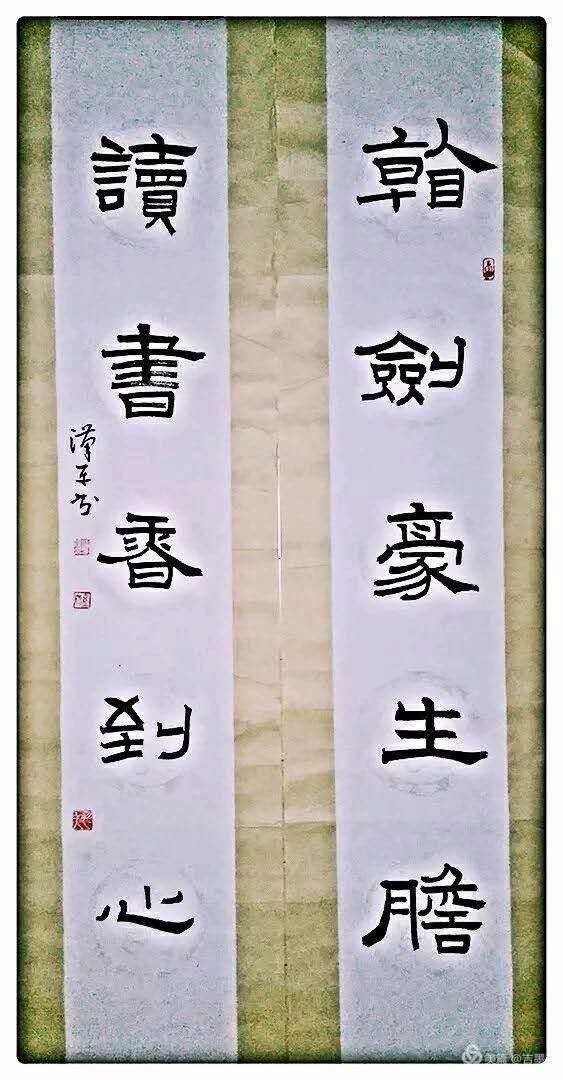 看劍豪生膽
讀書香到心
漢东书
美篇 @吉墨